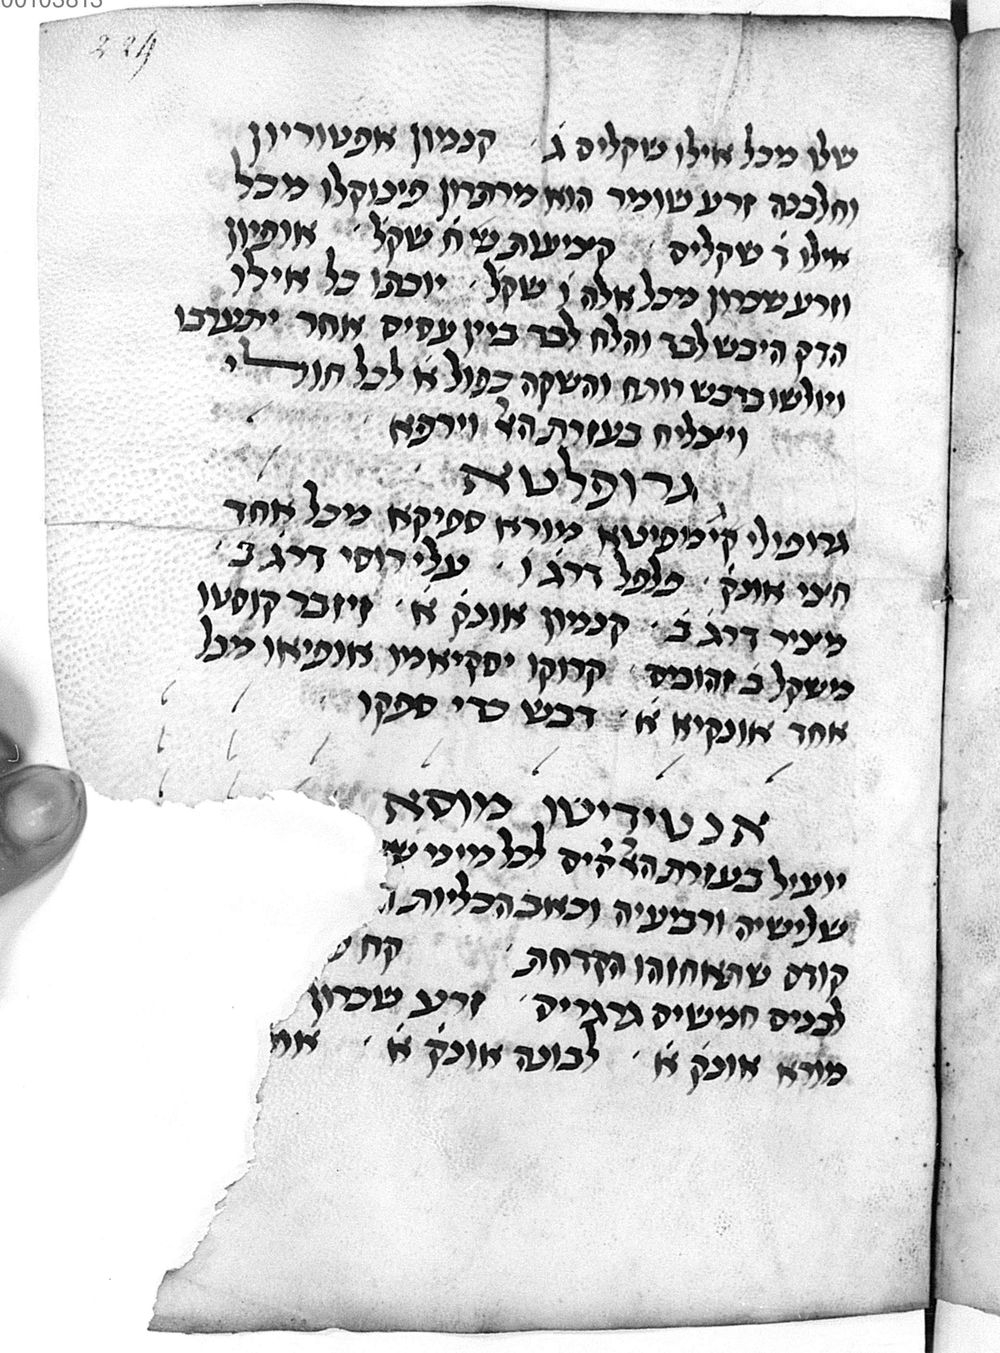 224
שלו מכל אילו שקליס ג֗ קנמון אפטוריון
וחלבנה זרע שומיר הוא מרתרון פינוקלו מכל
אילו ד֗ שקליס קציעות ח֗ שקל אופיון
וזרע שכרון מכל אלה ו֗ שקל יוכתו כל אילו
הדק היבש לבד והלח לבד ביין עסיס אחר יתערבו
ויולשו בדבש רותח והשקה כפול א֗ לכל חולי
ויצליח בעזרת הצ֗ וירפא
גרופלטא
גרופולי קימוסיטא מורא ספיקא מכל אחד
חצי אונק֗ פלפל דרג֗ ו֗ עלי רוסי דרג֗ ב֗
מציר דרג֗ ב֗ קנמון אונק֗ א֗ זיזבר קוסטו
משקל ב֗ זהובים קרוקו יסקיאמו אופיאו מכל
אחד אונקיא א֗ דבש טרי ספקו
אנטידיטון מוסא
יועיל בעזרת הצ֗ח֗יס לכל מיני
שלישיה ורביעיה וכאב הכליות
קודם שתאחזהו הקדחת קח
לבנים חמישים גרגריס זרע שכרון
מורא אונק֗ א֗ לבונה אונק֗ א֗